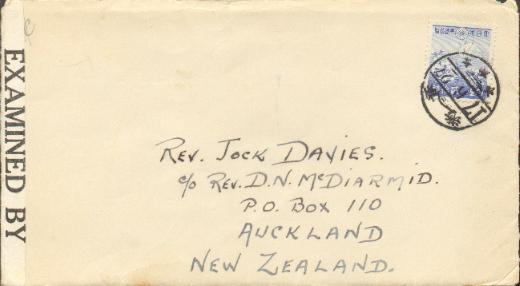 EXAMINED BY
REV. JOCK DAVIES.
c/o REV. D. N. McDIARMID.
P.O. BOX 110
AUCKLAND
NEW ZEALAND.